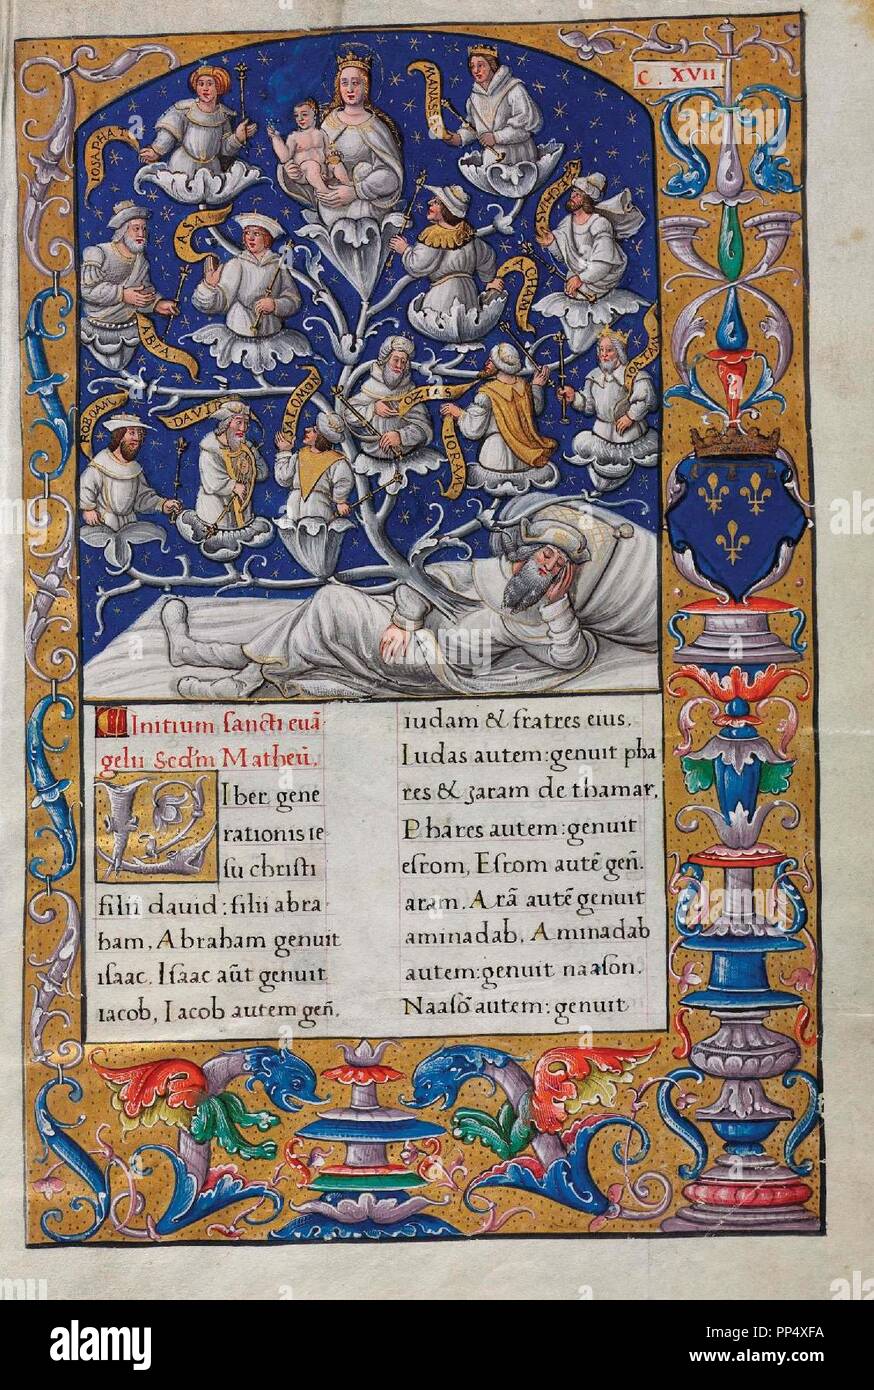 C. XVII
MANASSES
IOSAPHAT
ASA
ACHAM
ABIA
IOATAM
ROBOAM
DAVIT
SALOMON
OZIAS
IORAM
Initium sancti euā
gelii Scd'm Matheū.
Liber gene
rationis ie
su christi
filii dauid: filii abra
ham. Abraham genuit
isaac. Isaac aūt genuit
iacob, Iacob autem geñ.
iudam & fratres eius.
Iudas autem: genuit pha
res & zaram de thamar.
Phares autem: genuit
esrom, Esrom autē geñ.
aram. Arā autē genuit
aminadab. Aminadab
autem: genuit naason.
Naasō autem: genuit
alamy
Image ID: PP4XFA
www.alamy.com